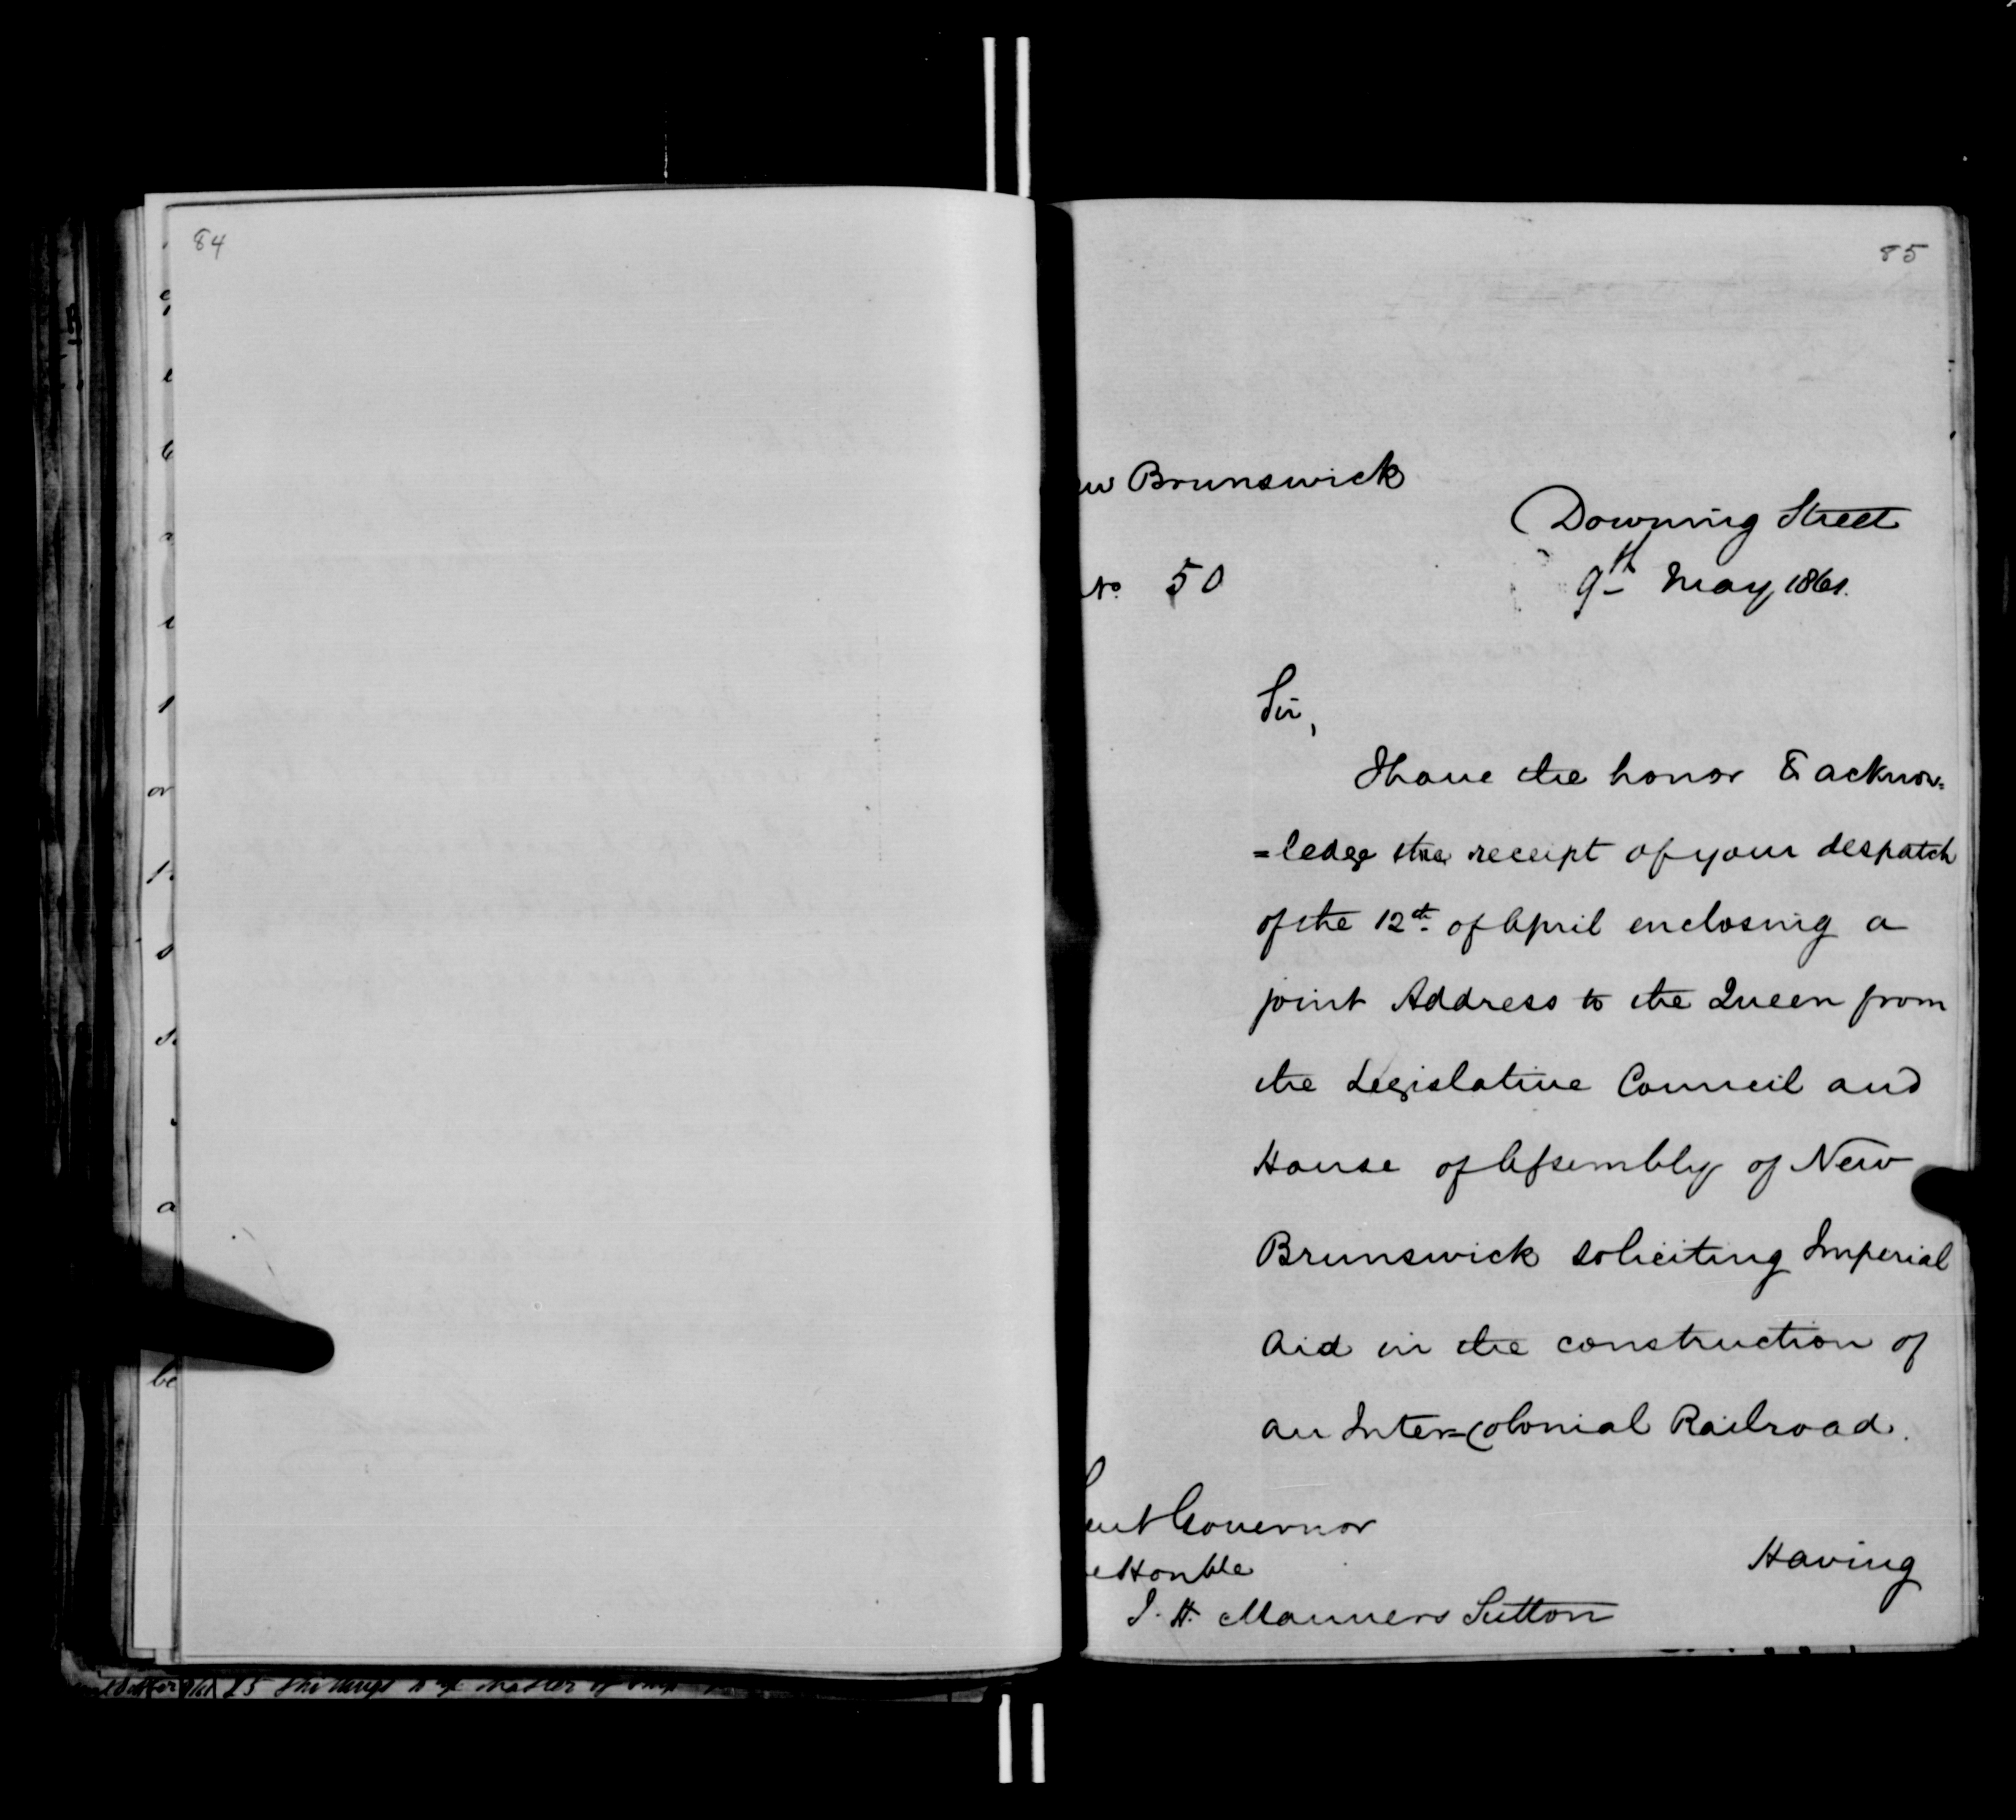 84
85
w Brunswick
Downing Street
No. 50
9th May 1861.
Sir,
I have the honor to acknow=
=ledge the receipt of your despatch
of the 12th. of April enclosing a
joint Address to the Queen from
the Legislative Council and
House of Assembly of New
Brunswick soliciting Imperial
Aid in the construction of
an Inter=Colonial Railroad.
Governor
Honble
J. H. Manners Sutton
Having